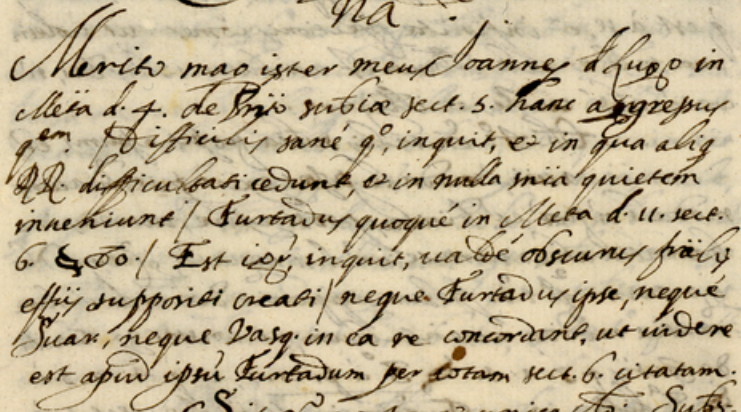 na.
Merito magister meus Joannes d Lugo in
Meta d. 4. de sect. 5. hanc aggressus
qem. / Difficilis sané qo, inquit, et in qua aliq
RR. difficultati cedunt, et in nulla mia quietem
inueniunt / Furtadus quoqué in Meta d. 11. sect.
6. / Est igr, inquit, ualdé obscurus
suppositi creati / neque Furtadus ipse, neque
Suar., neque Vasq. in ea re concordant, ut uidere
est apud ipsū Furtadum per totam sect. 6. citatam.